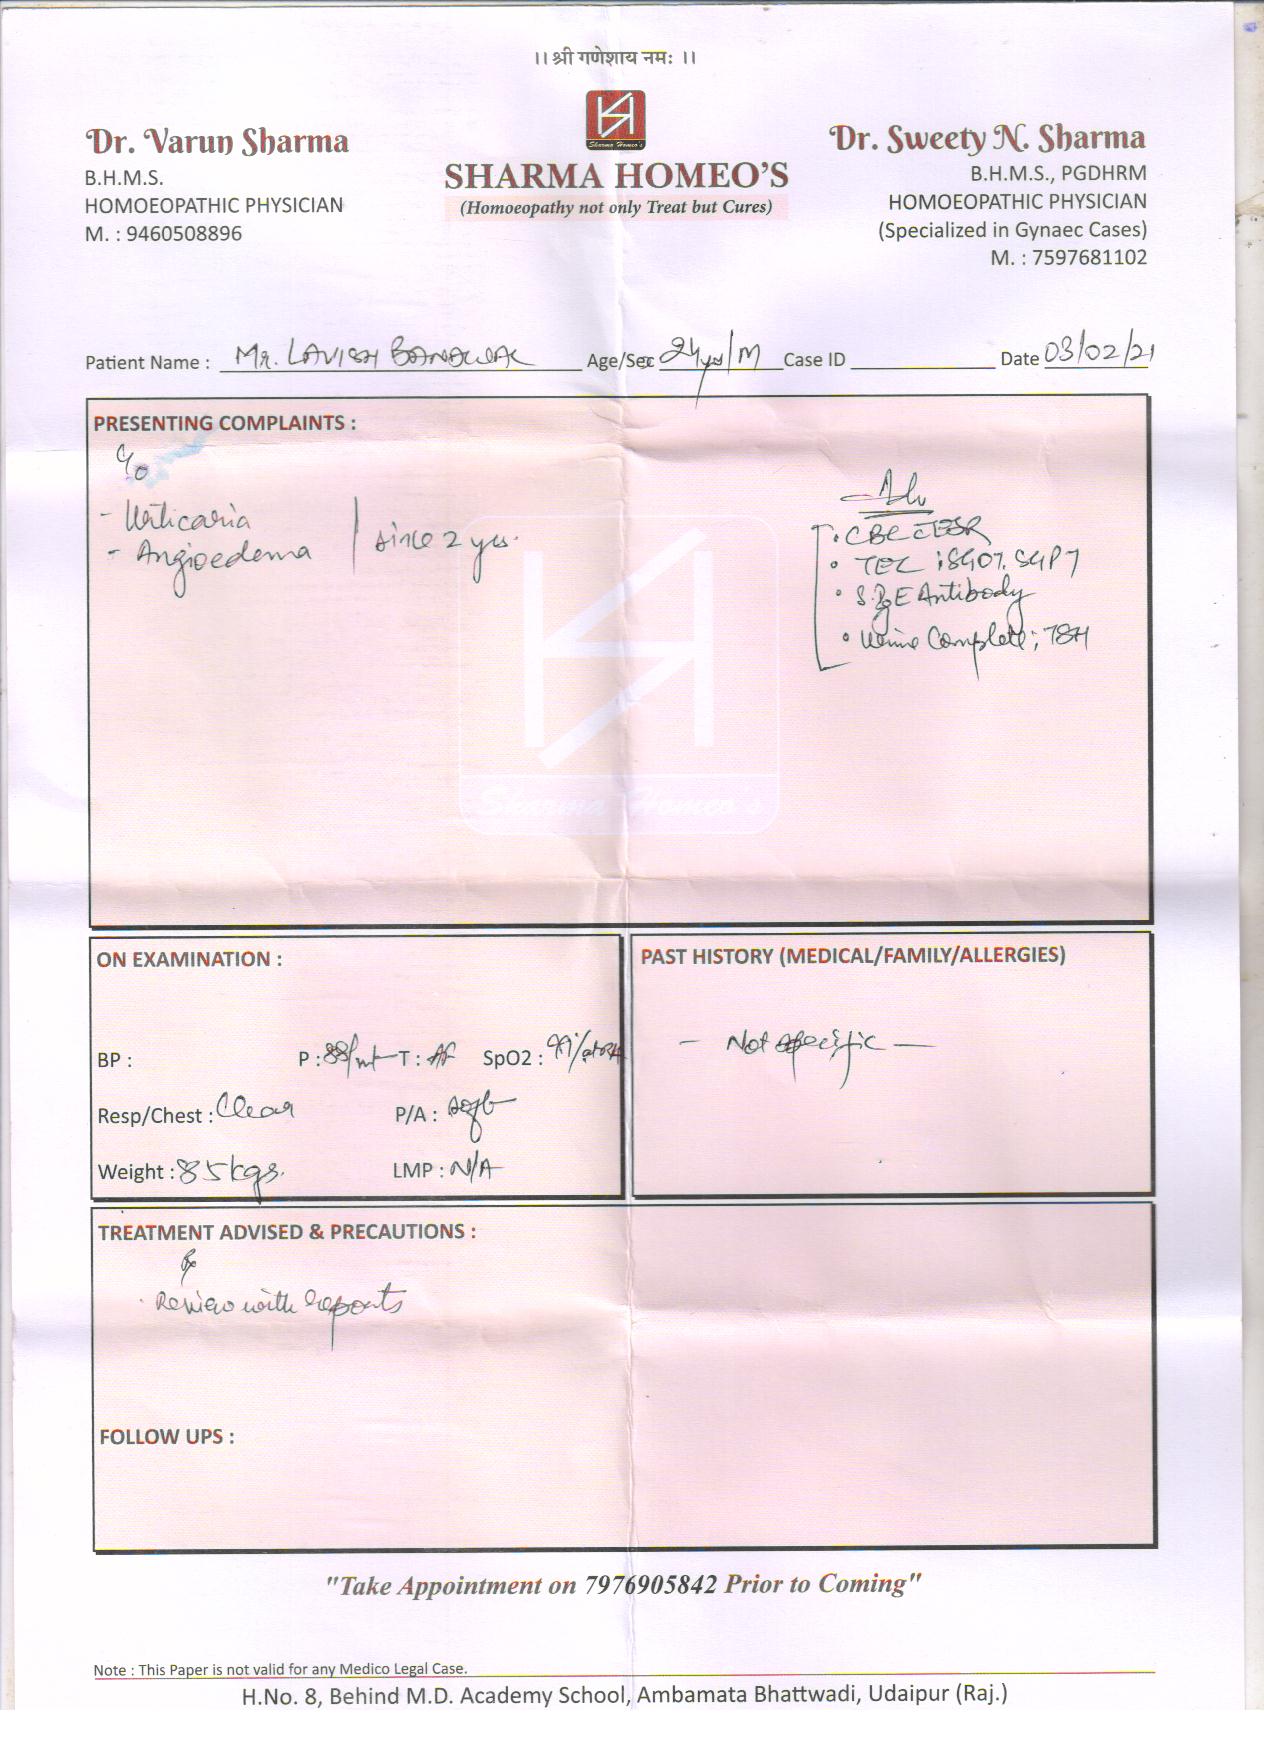 ।। श्री गणेशाय नमः ।।
Sharma Homeo's
Dr. Varun Sharma
B.H.M.S.
HOMOEOPATHIC PHYSICIAN
M. : 9460508896
SHARMA HOMEO'S
(Homoeopathy not only Treat but Cures)
Dr. Sweety N. Sharma
B.H.M.S., PGDHRM
HOMOEOPATHIC PHYSICIAN
(Specialized in Gynaec Cases)
M. : 7597681102
Patient Name : Mr. LAVISH BANAWAL Age/Sec 24ys/M Case ID Date 03/02/21
PRESENTING COMPLAINTS :
c/o
- Urticaria
- Angioedema | since 2 yrs.
Adv
• CBC ESR
• TEC ; SGOT, SGPT
• S. IgE Antibody
• Urine Complete; TSH
Sharma Homeo's
ON EXAMINATION :
BP : P : 88/mt T : AF SpO2 : 99%
Resp/Chest : Clear P/A :
Weight : 85 kgs. LMP : N/A
PAST HISTORY (MEDICAL/FAMILY/ALLERGIES)
- Not specific -
TREATMENT ADVISED & PRECAUTIONS :
Rx
. Review with reports
FOLLOW UPS :
"Take Appointment on 7976905842 Prior to Coming"
Note : This Paper is not valid for any Medico Legal Case.
H.No. 8, Behind M.D. Academy School, Ambamata Bhattwadi, Udaipur (Raj.)